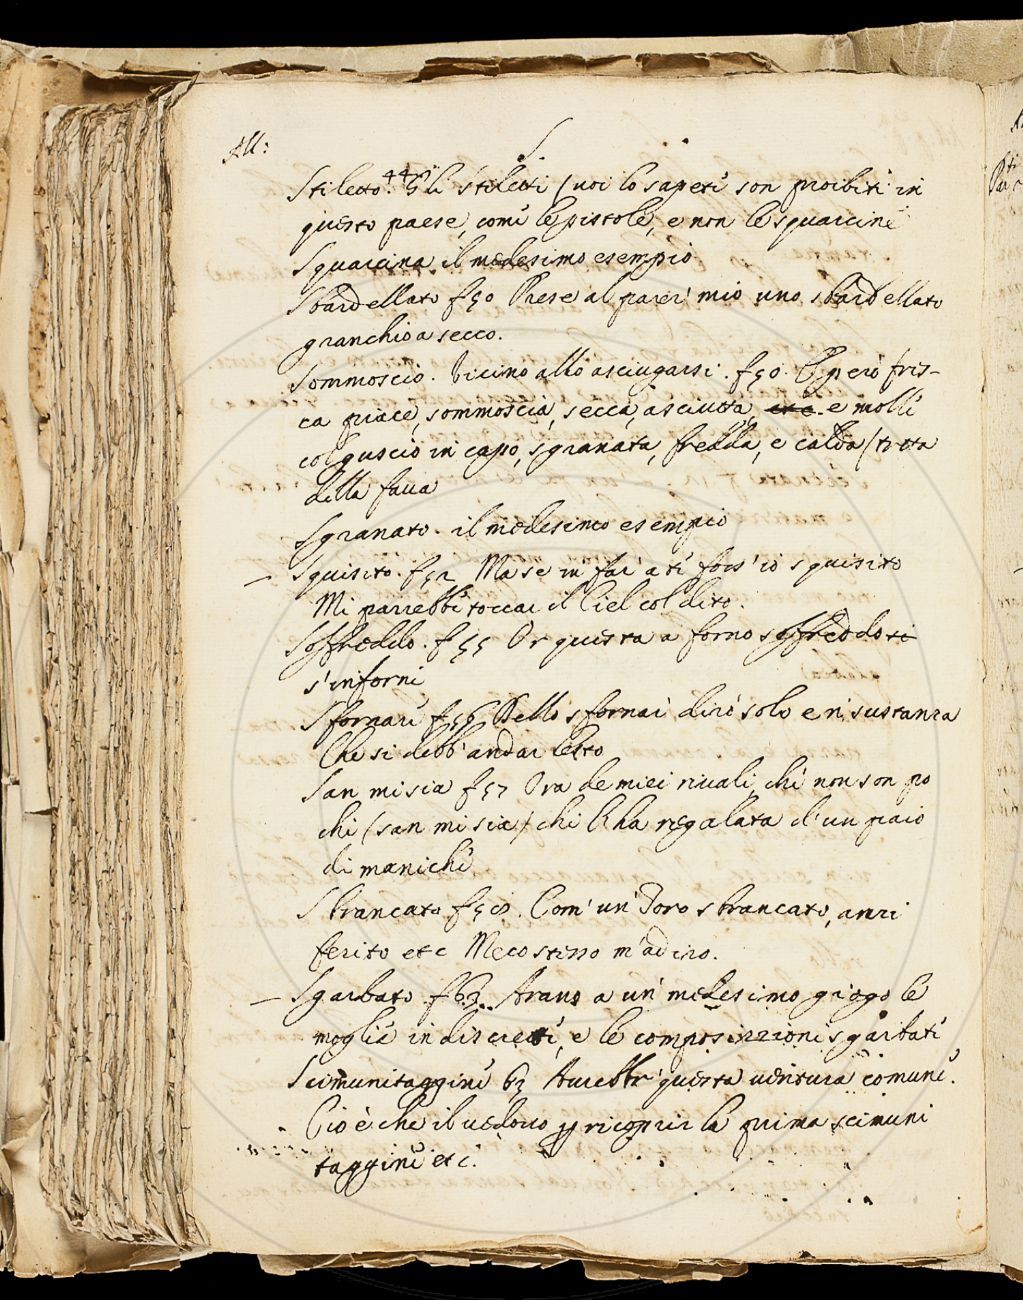 All:
S.
Stiletto. 44 Gli stiletti (voi lo sapete son proibiti in
questo paese, come le pistole, e non le squarcine
Squarcina il medesimo esempio
Sbardellato f 50 Prese al parer mio uno sbardellato
granchio a secco.
Sommoscio. Vicino allo asciugarsi. f 50. E però fres-
ca piace, sommoscia, secca, asciutta, etc. e molle
col guscio in capo, sgranata, fredda, e calda (tratta
della fava
Sgranato. il medesimo esempio
— Squisito. f 52 Ma se in far a te foss' io squisito
Mi parrebbe toccar il Ciel col dito.
Soffreddo. f 55 Or questa a forno soffreddo si
s'inforni
Sfornare f 56 Dello sfornar dirò solo e n' sustanza
Che si debb' andar lesto
San mi sia f 57 Ora de miei rivali, che non son po
chi (san mi sia) chi l'ha regalata d'un paio
di maniche
Sbrancato f 58. Com' un' Toro sbrancato, anzi
ferito etc Meco stesso m'adiro.
— Sgarbato. f 63. Arano a un' medesimo giogo le
moglie indiscrete, e le composizzioni sgarbate
Scimunitaggine 63 Avrebbe questa ventura comune.
Cioè che il vedono p ricoprir la prima scimuni
taggine etc.